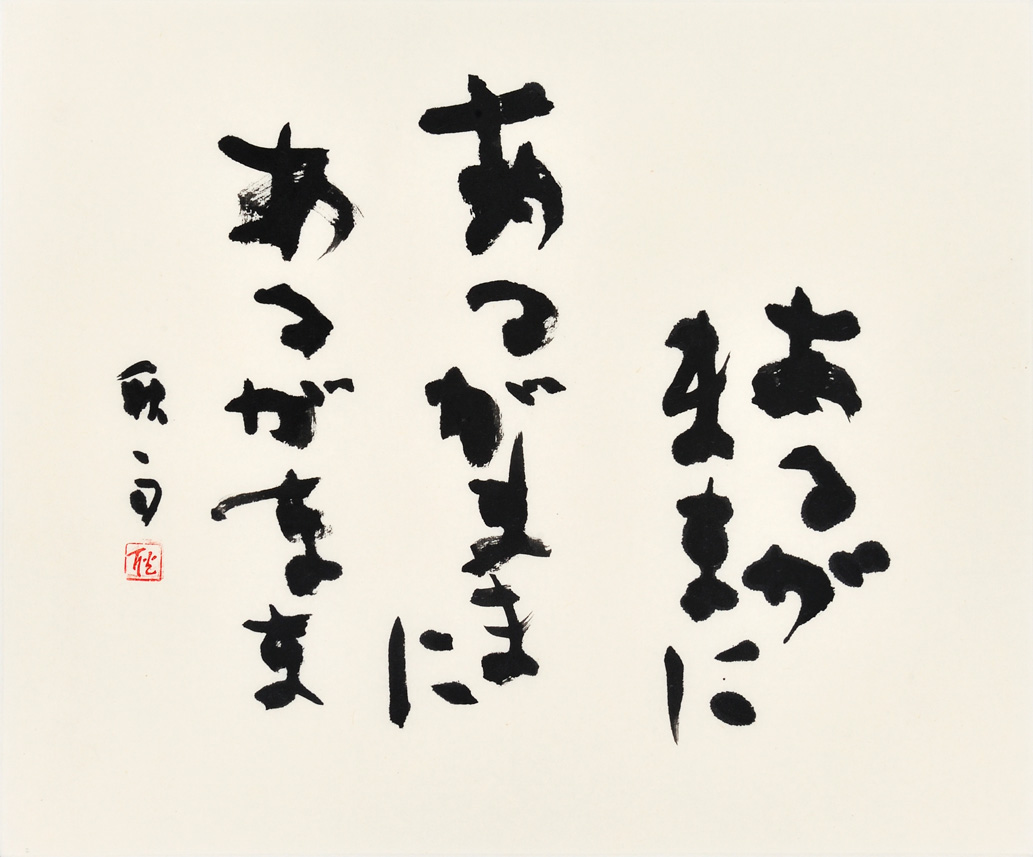 あるが
ままに
あるがままに
あるがまま